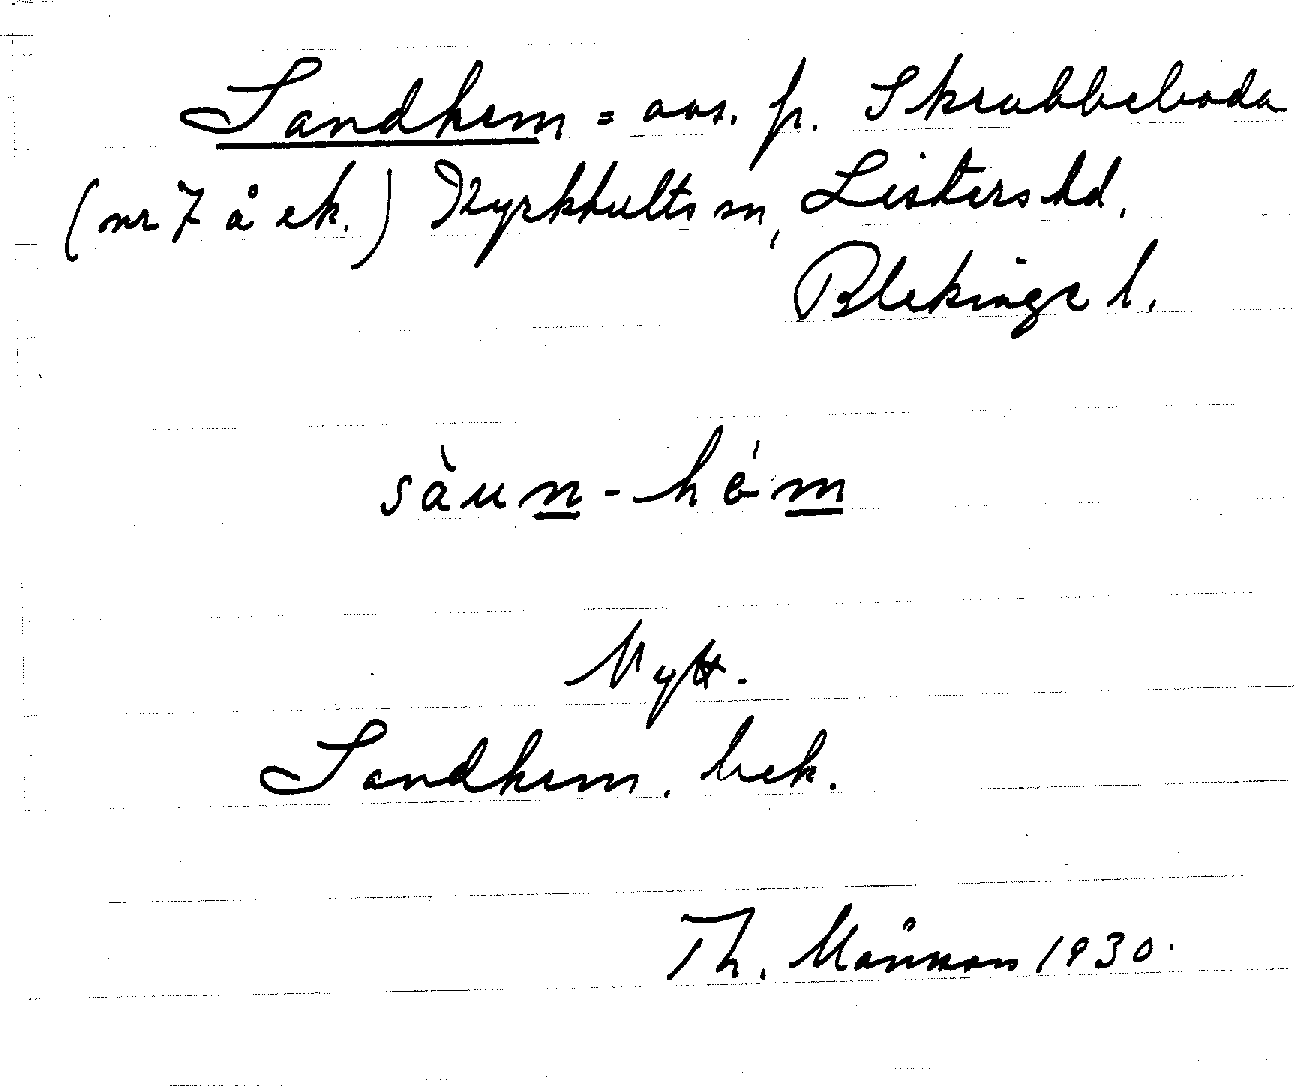 Sandhem = avs. fr. Skrubbeboda
(nr 7 å ek.) Kyrkhults sn, Listers hd,
Blekinge l.
sàun-hém
Nytt.
Sandhem, bek.
Th. Månsson 1930.